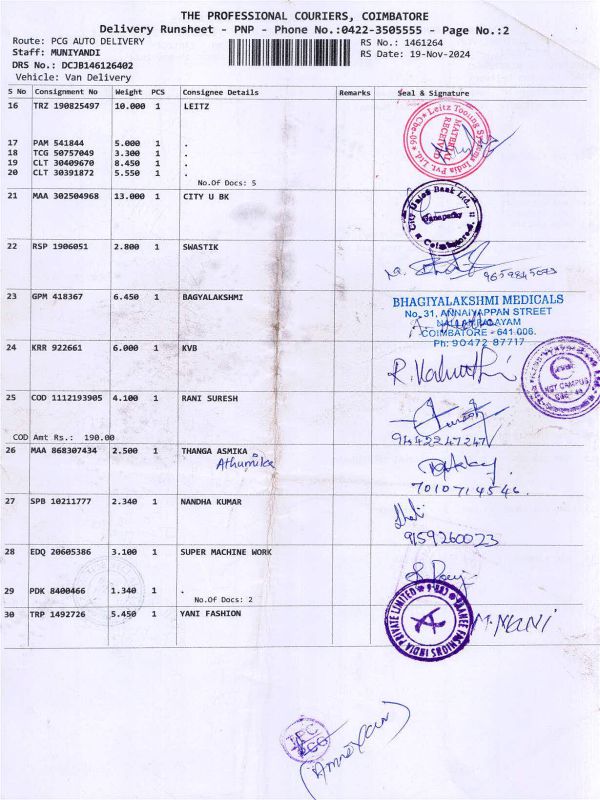 THE PROFESSIONAL COURIERS, COIMBATORE
Delivery Runsheet - PNP - Phone No.:0422-3505555 - Page No.:2
Route: PCG AUTO DELIVERY
RS No.: 1461264
Staff: MUNIYANDI
RS Date: 19-Nov-2024
DRS No.: DCJB146126402
Vehicle: Van Delivery
S No Consignment No Weight PCS Consignee Details Remarks Seal & Signature
16 TRZ 190825497 10.000 1 LEITZ
Leitz Tooling Systems India Pvt. Ltd. * Cbe-06 *
MATERIAL
RECEIVED
17 PAM 541844 5.000 1 .
18 TCG 50757049 3.300 1 .
19 CLT 30409670 8.450 1 .
20 CLT 30391872 5.550 1 .
No.Of Docs: 5
21 MAA 302504968 13.000 1 CITY U BK
City Union Bank Ltd.,
Ganapathy
Coimbatore
22 RSP 1906051 2.800 1 SWASTIK
23 GPM 418367 6.450 1 BAGYALAKSHMI
BHAGIYALAKSHMI MEDICALS
No. 31, ANNAIYAPPAN STREET
COIMBATORE - 641 006.
Ph: 90472 87717
24 KRR 922661 6.000 1 KVB
25 COD 1112193905 4.100 1 RANI SURESH
9442247247
COD Amt Rs.: 190.00
26 MAA 868307434 2.500 1 THANGA ASMIKA
Athumika
7010714546
27 SPB 10211777 2.340 1 NANDHA KUMAR
9159260023
28 EDQ 20605386 3.100 1 SUPER MACHINE WORK
29 PDK 8400466 1.340 1 .
No.Of Docs: 2
30 TRP 1492726 5.450 1 YANI FASHION
FASHIONS INDIA PRIVATE LIMITED
M. MANI